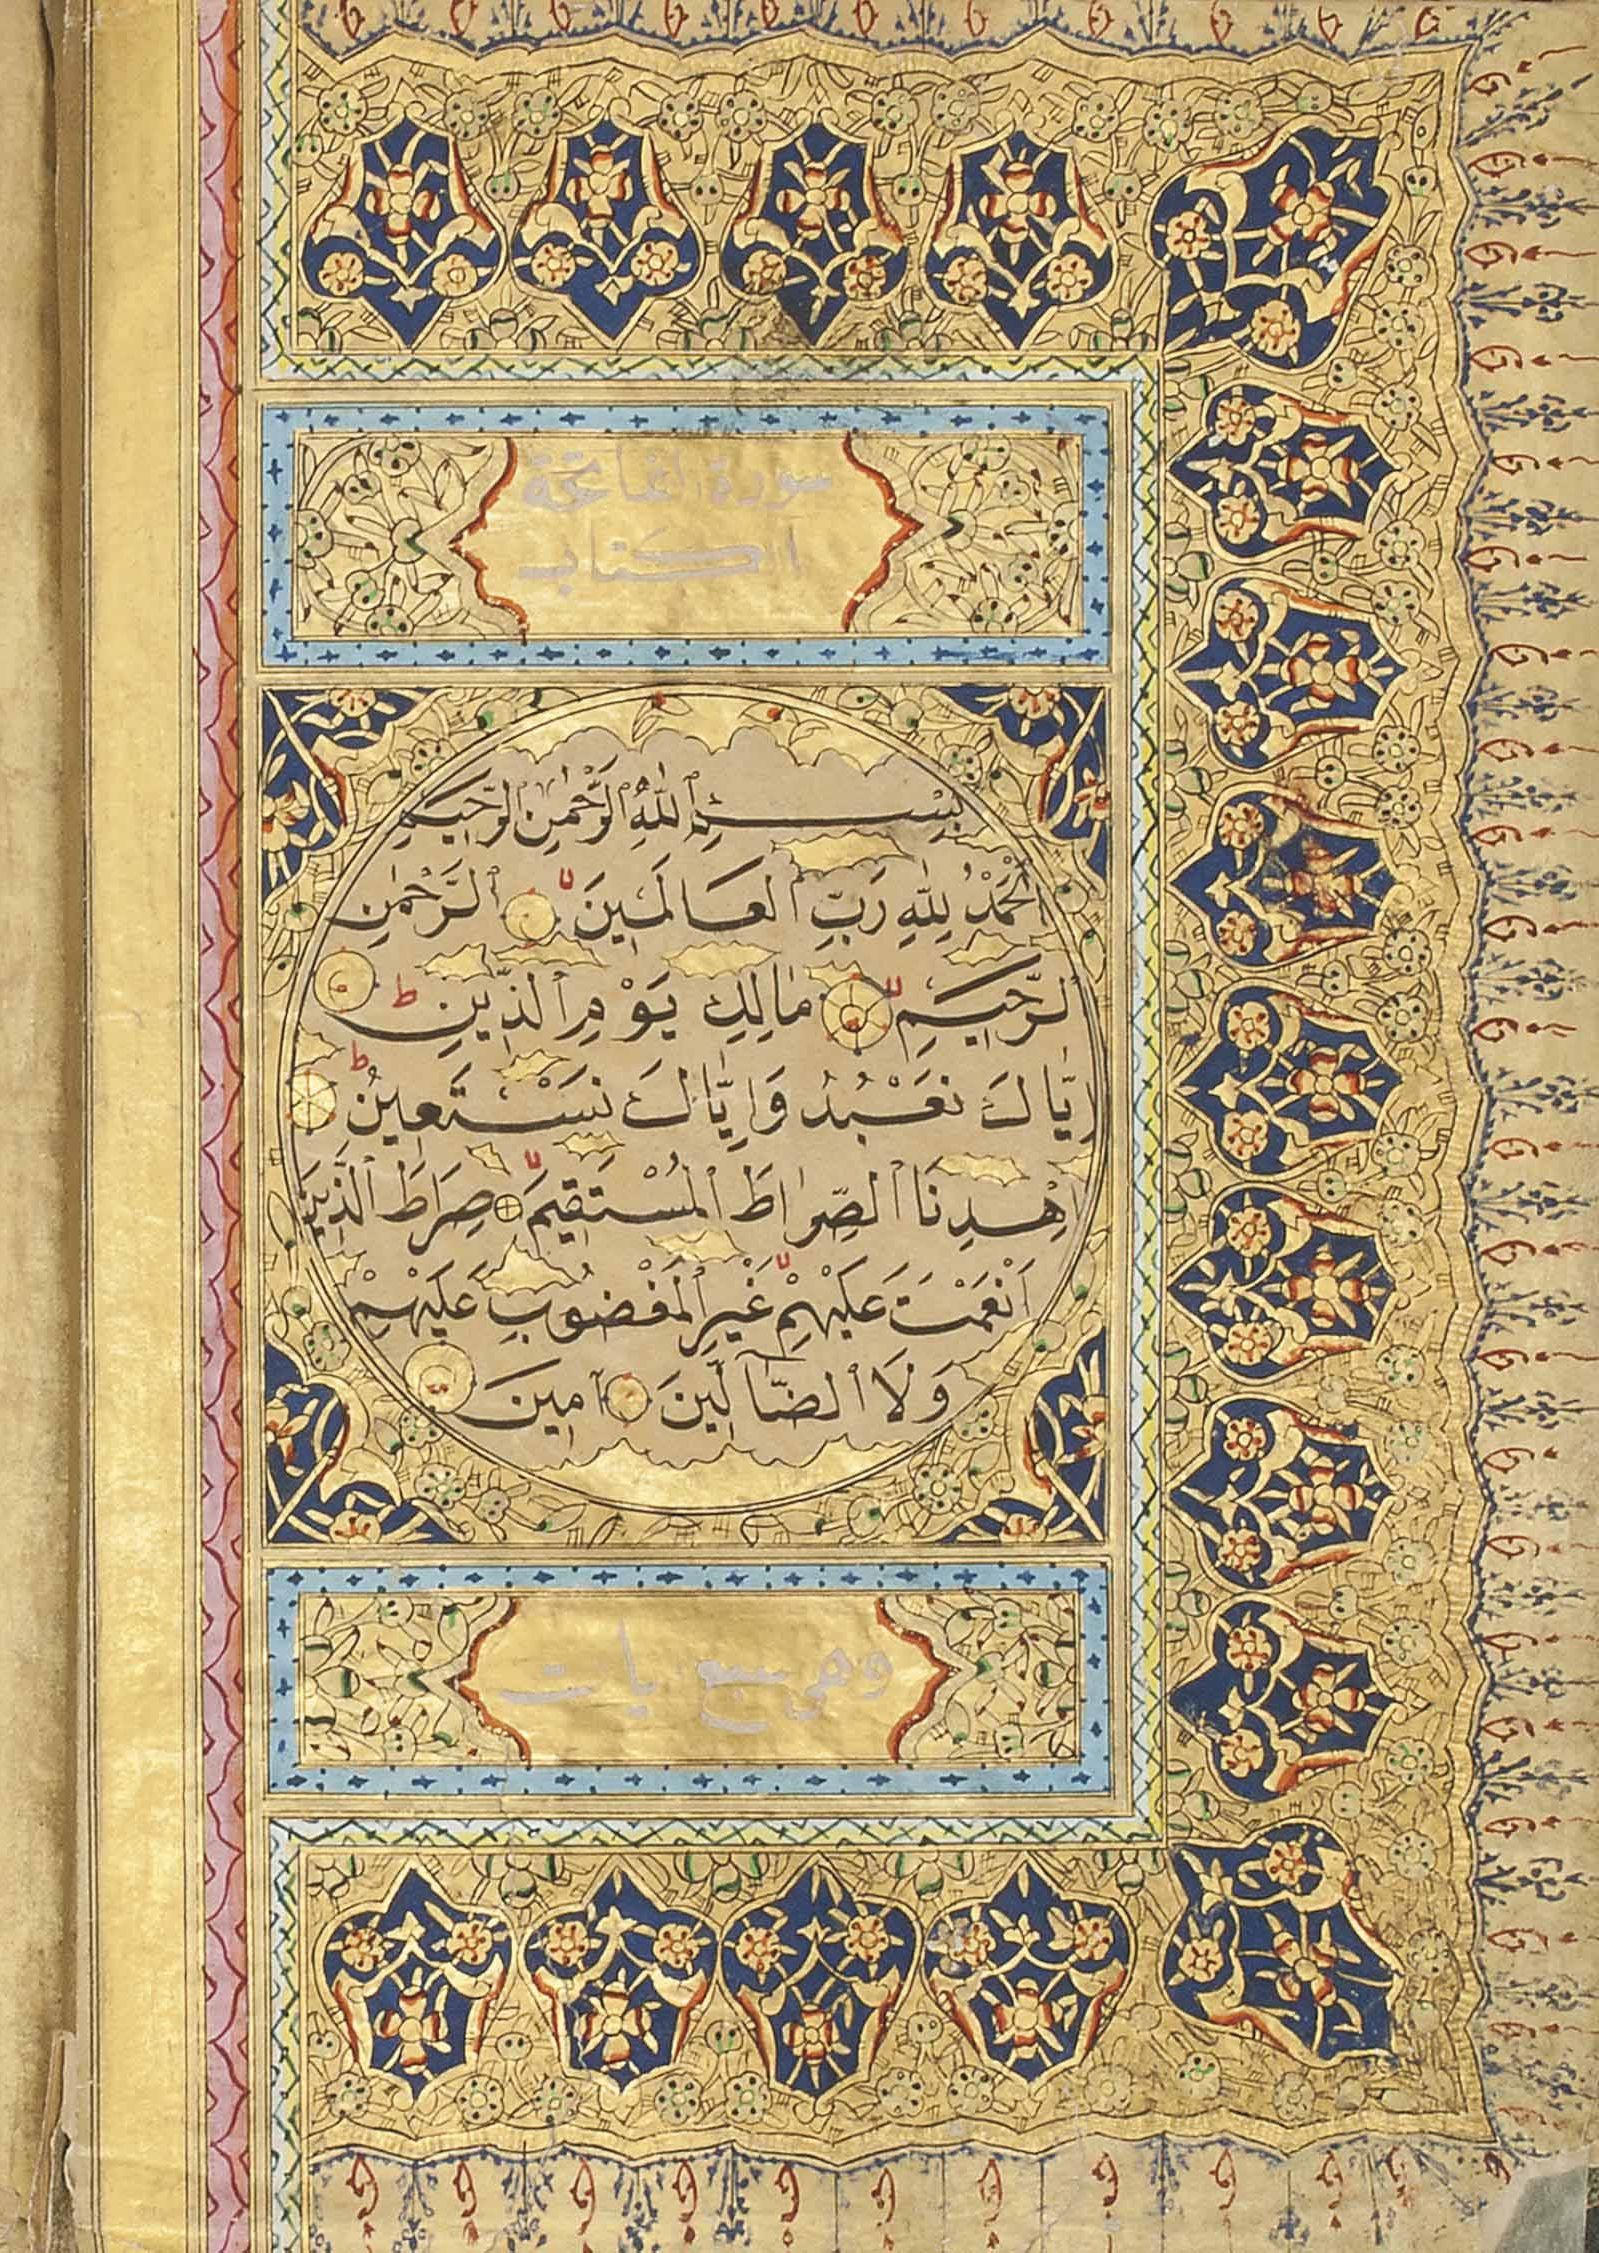 سورة الفاتحة
الكتاب
بِسْمِ ٱللّٰهِ ٱلرَّحْمٰنِ ٱلرَّحِيمِ
اَلْحَمْدُ لِلّٰهِ رَبِّ ٱلْعَالَمِينَ ۙ ٱلرَّحْمٰنِ
ٱلرَّحِيمِ ۙ مَالِكِ يَوْمِ ٱلدِّينِ ط
اِيَّاكَ نَعْبُدُ وَاِيَّاكَ نَسْتَعِينُ ط
اِهْدِنَا ٱلصِّرَاطَ ٱلْمُسْتَقِيمَ ۙ صِرَاطَ ٱلَّذِينَ
اَنْعَمْتَ عَلَيْهِمْ ۙ غَيْرِ ٱلْمَغْضُوبِ عَلَيْهِمْ
وَلَا ٱلضَّآلِّينَ آمِينَ
وهي سبع يات